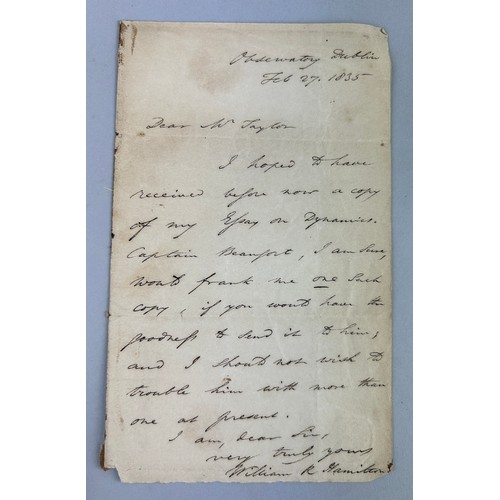 Observatory Dublin
Feb 27. 1835
Dear Mr Taylor
I hoped to have
received before now a copy
of my Essay on Dynamics.
Captain Beaufort, I am sure,
would frank me one such
copy, if you would have the
goodness to send it to him;
and I should not wish to
trouble him with more than
one at present.
I am, dear Sir,
very truly yours
William R Hamilton